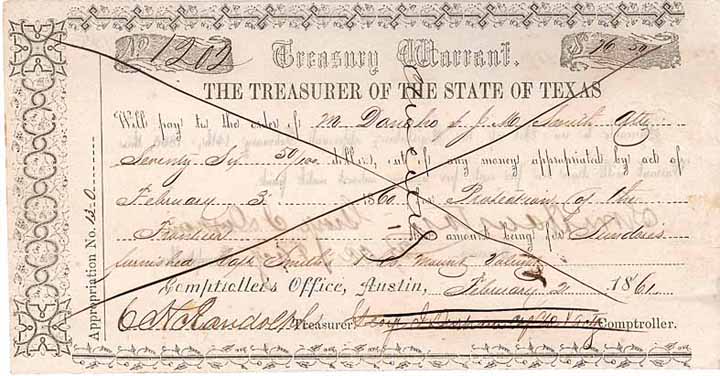 No 1202 Treasury Warrant. $ 76 50
THE TREASURER OF THE STATE OF TEXAS
Will pay to the order of M Dancho & J. M. Smith atty
Seventy Six 50/100 dollars, out of any money appropriated by act of
February 3 1860 for Protection of the
Frontier the amount being for Sundries
furnished Capt Smith's Co. Mount Volun
Comptroller's Office, Austin, February 2 1861
C H Randolph Treasurer Comptroller.
Appropriation No. 120